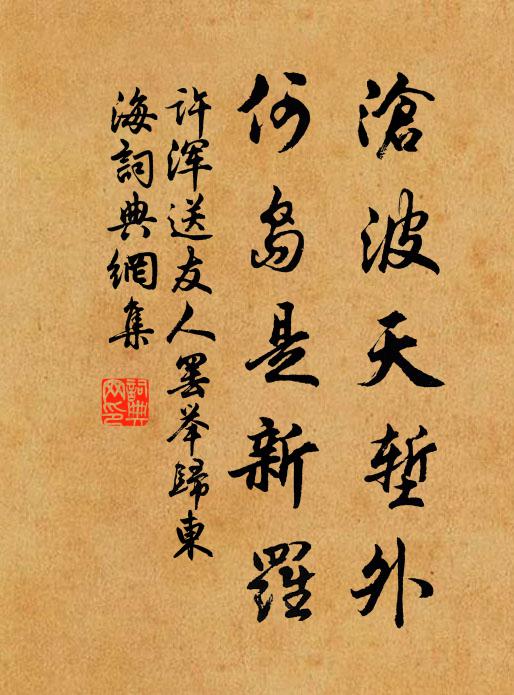 滄波天塹外
何島是新羅
許渾送友人罢举歸東
海詞典網集
詞典
网印